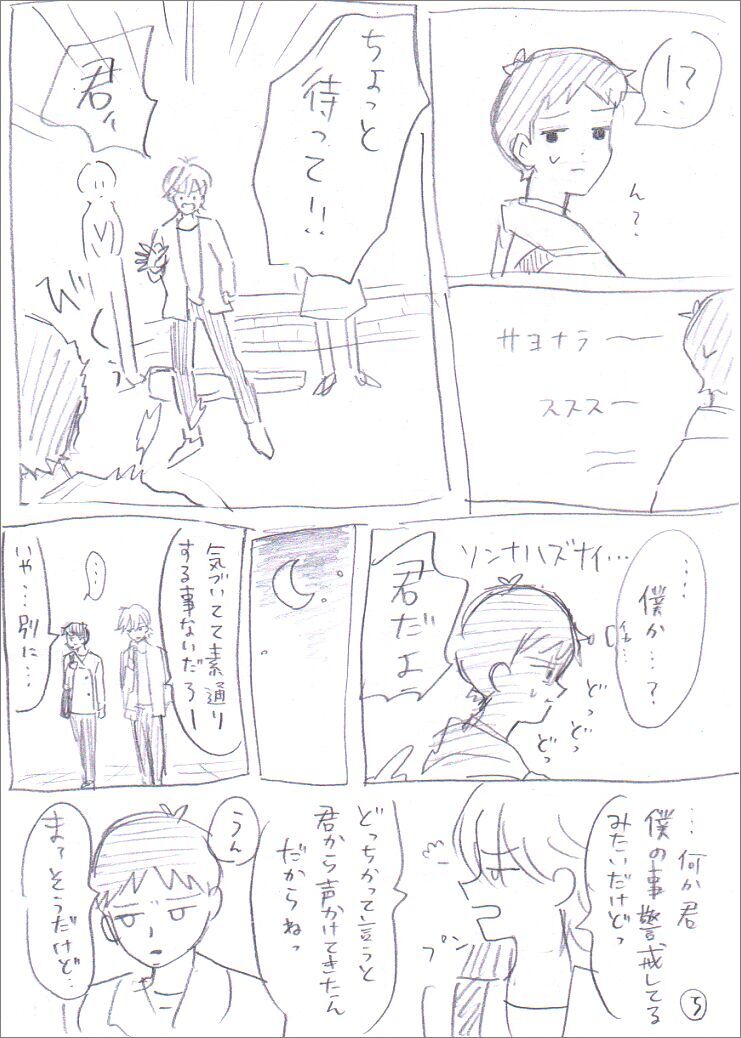 !?
ん?
サヨナラ〜
ススス〜
ちょっと
待って!!
君!!
びくぅ
…
僕か…?
イヤ…
ソンナハズナイ…
君だよ
どっ
どっ
どっ
気づいてて素通り
する事ないだろー
…
いや…別に…
…何か君
僕の事警戒してる
みたいだけどっ
プン
どっちかって言うと
君から声かけてきたん
だからねっ
うん
まぁそうだけど…
5